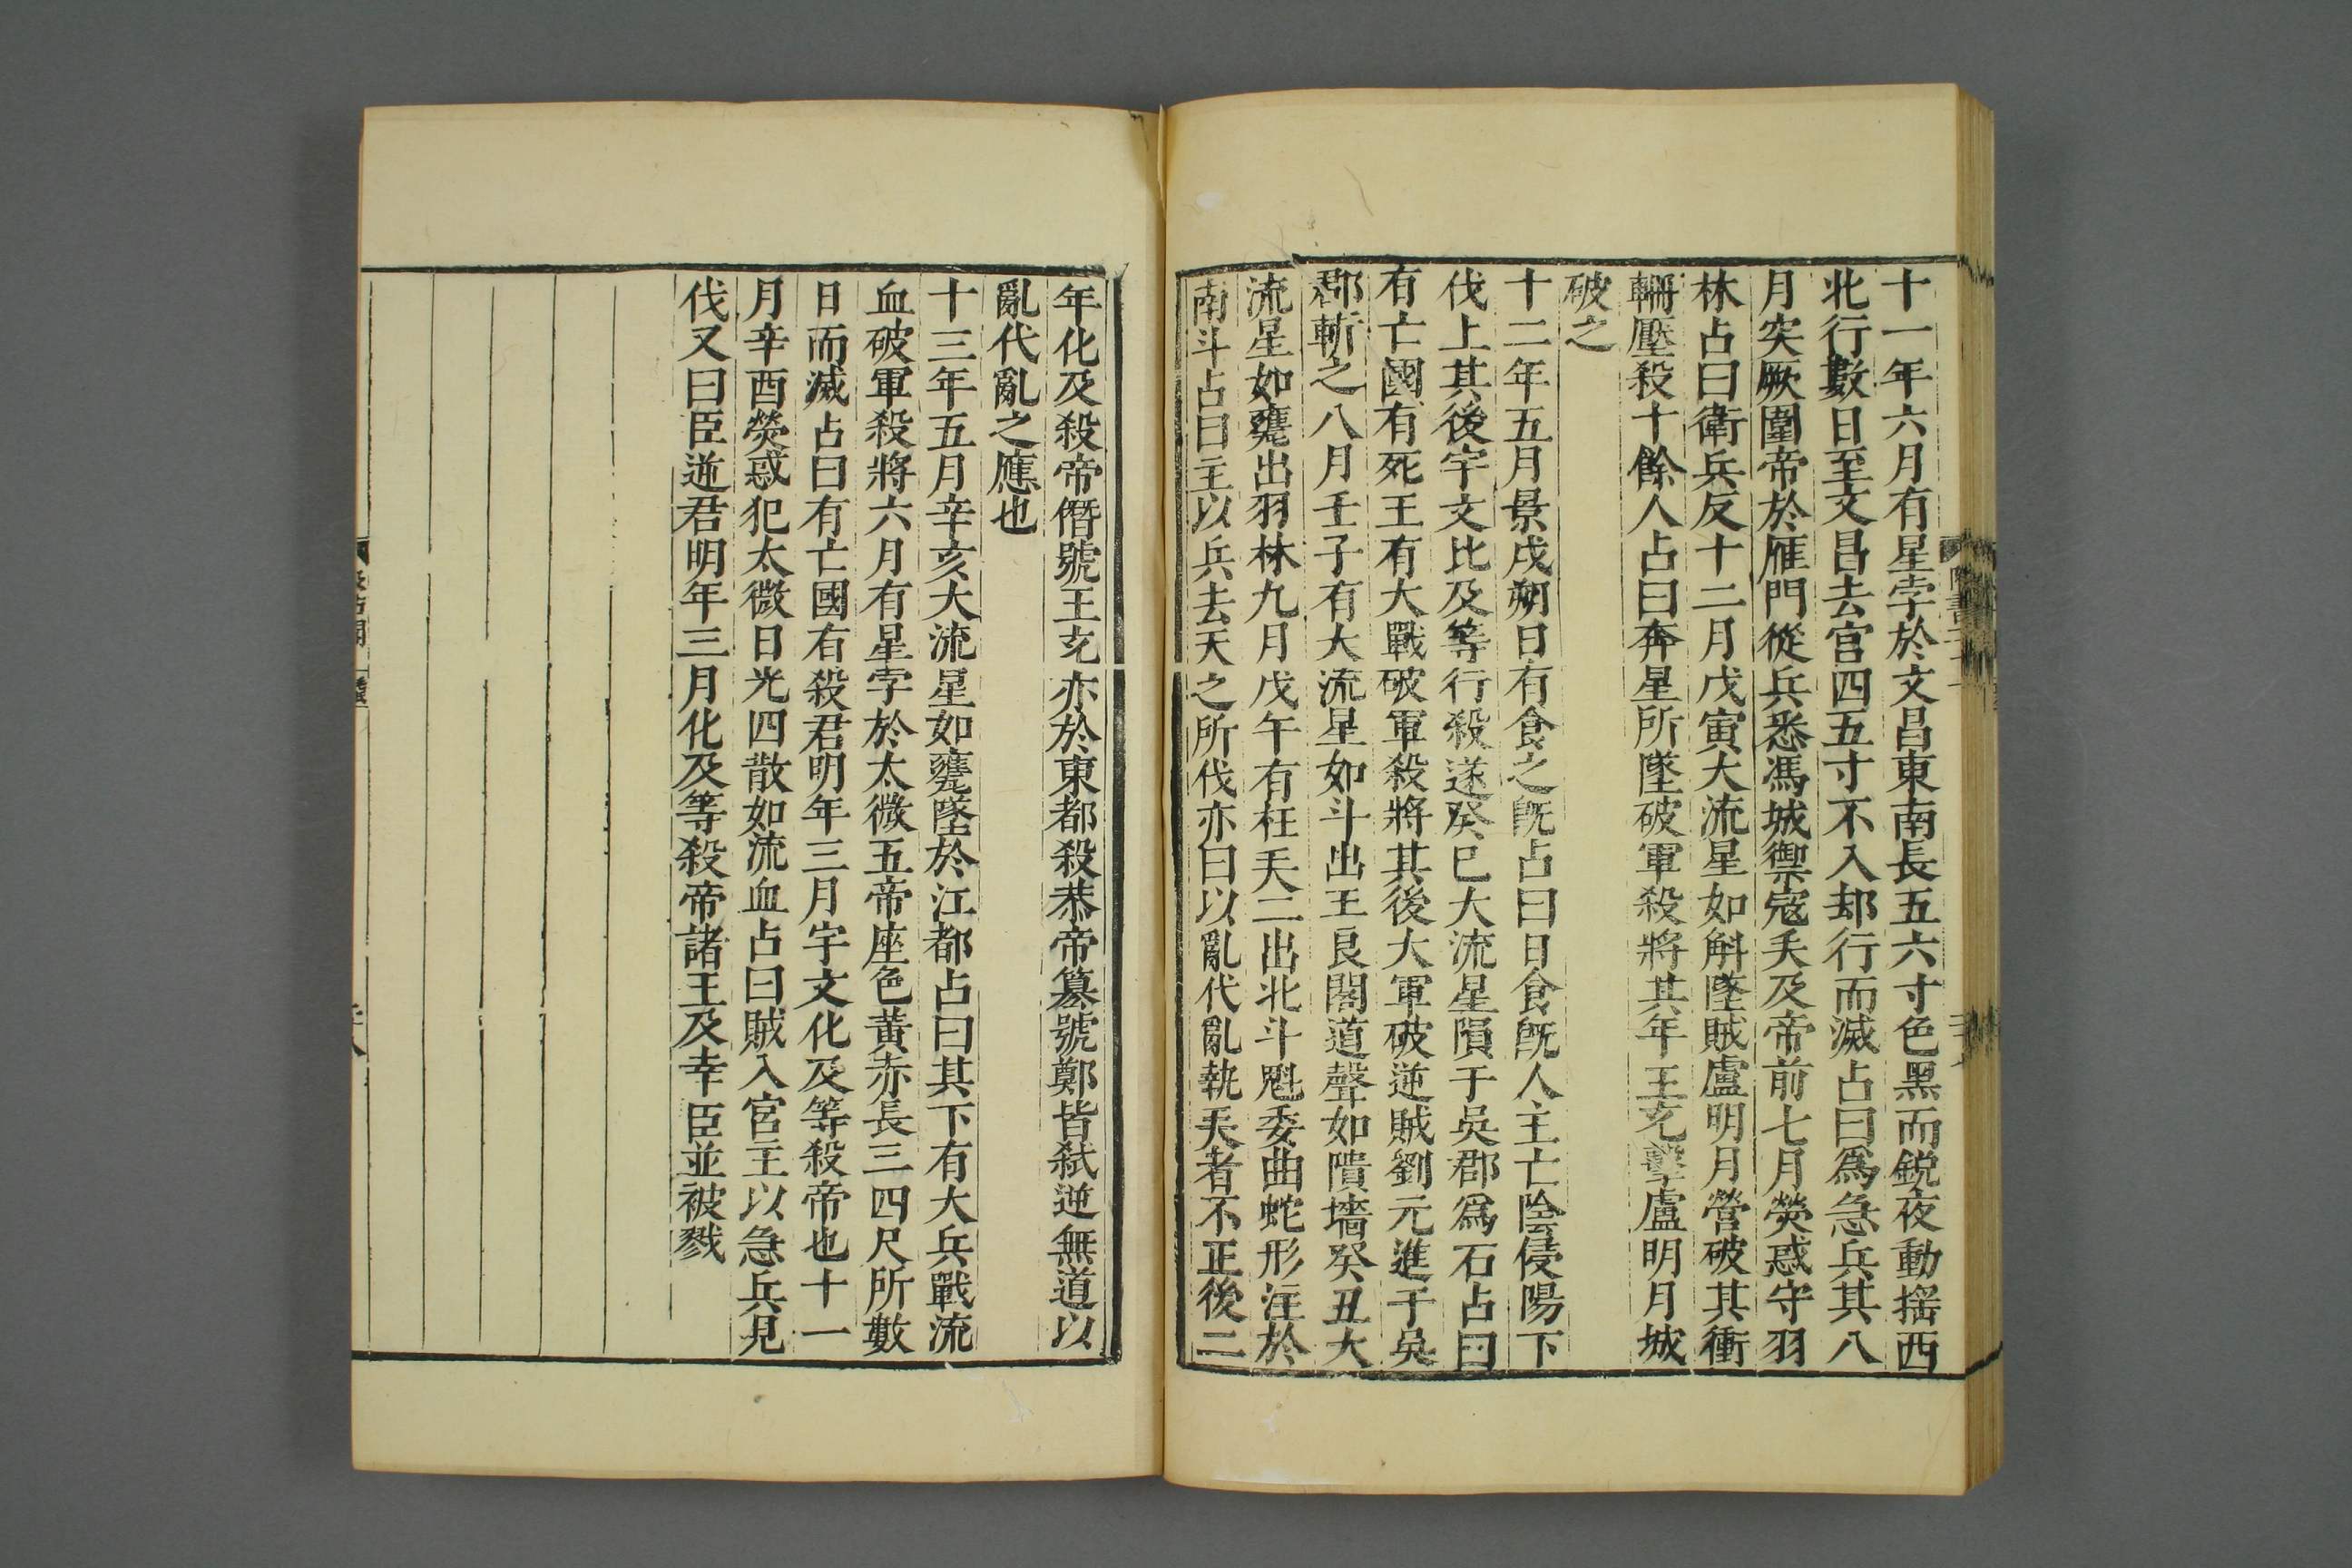 十一年六月有星孛於文昌東南長五六寸色黑而鋭夜動揺西
北行數日至文昌去宫四五寸不入却行而滅占曰爲急兵其八
月突厥圍帝於雁門從兵悉馮城禦寇矢及帝前七月熒惑守羽
林占曰衛兵反十二月戊寅大流星如斛墜賊盧明月營破其衝
輣壓殺十餘人占曰奔星所墜破軍殺將其年王充擊盧明月城
破之
十二年五月景戌朔日有食之旣占曰日食旣人主亡陰侵陽下
伐上其後宇文化及等行殺逆癸巳大流星隕于吳郡爲石占曰
有亡國有死王有大戰破軍殺將其後大軍破逆賊劉元進于吳
郡斬之八月壬子有大流星如斗出王良閣道聲如隤墻癸丑大
流星如甕出羽林九月戊午有枉矢二出北斗魁委曲蛇形注於
南斗占曰主以兵去天之所伐亦曰以亂代亂執矢者不正後二
年化及殺帝僭號王充亦於東都殺恭帝簒號鄭皆弑逆無道以
亂代亂之應也
十三年五月辛亥大流星如甕墜於江都占曰其下有大兵戰流
血破軍殺將六月有星孛於太微五帝座色黃赤長三四尺所數
日而滅占曰有亡國有殺君明年三月宇文化及等殺帝也十一
月辛酉熒惑犯太微日光四散如流血占曰賊入宮主以急兵見
伐又曰臣逆君明年三月化及等殺帝諸王及幸臣並被戮